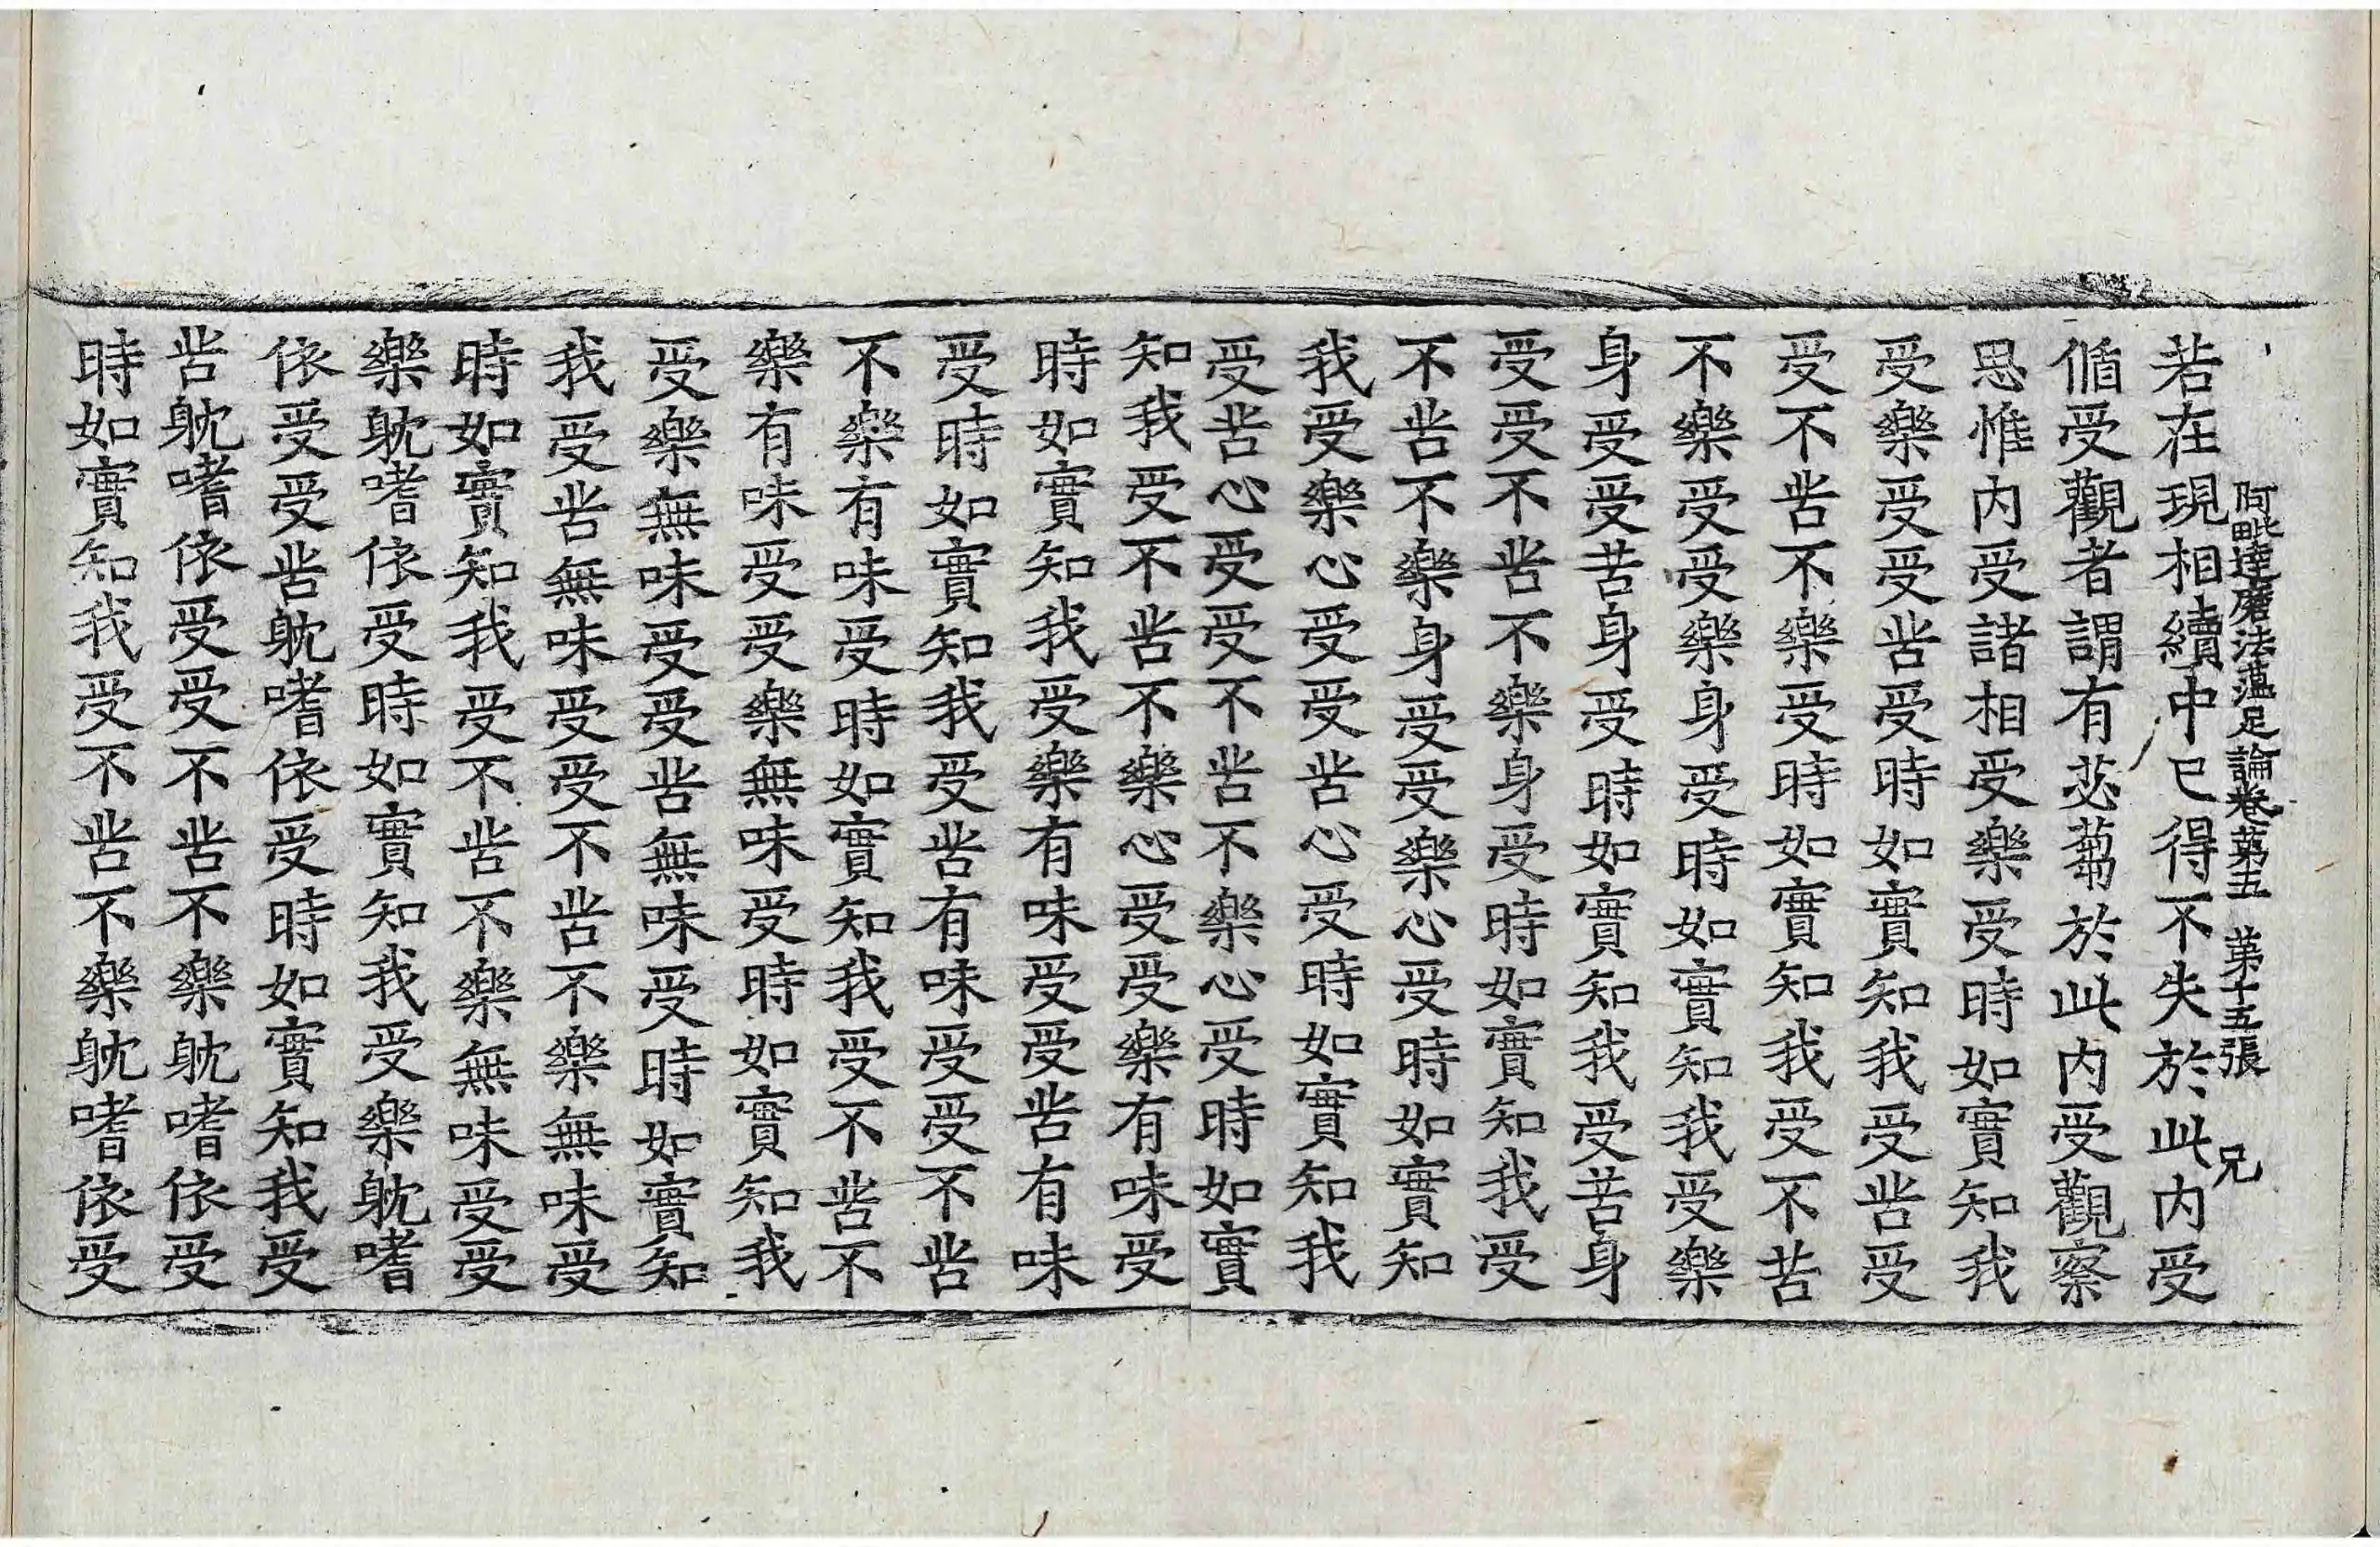 阿毗達磨法蘊足論卷第五　第十五張　兄
若在現相續中已得不失於此內受
循受觀者謂有苾蒭於此內受觀察
思惟內受諸相受樂受時如實知我
受樂受受苦受時如實知我受苦受
受不苦不樂受時如實知我受不苦
不樂受受樂身受時如實知我受樂
身受受苦身受時如實知我受苦身
受受不苦不樂身受時如實知我受
不苦不樂身受受樂心受時如實知
我受樂心受受苦心受時如實知我
受苦心受受不苦不樂心受時如實
知我受不苦不樂心受受樂有味受
時如實知我受樂有味受受苦有味
受時如實知我受苦有味受受不苦
不樂有味受時如實知我受不苦不
樂有味受受樂無味受時如實知我
受樂無味受受苦無味受時如實知
我受苦無味受受不苦不樂無味受
時如實知我受不苦不樂無味受受
樂躭嗜依受時如實知我受樂躭嗜
依受受苦躭嗜依受時如實知我受
苦躭嗜依受受不苦不樂躭嗜依受
時如實知我受不苦不樂躭嗜依受